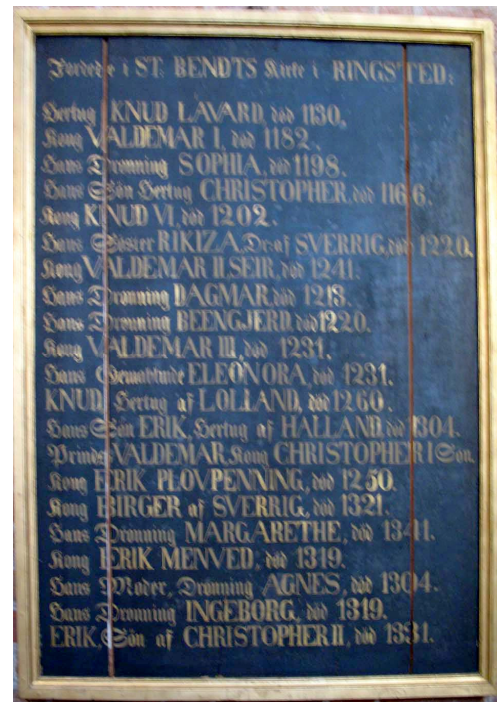 Jordede i ST. BENDTS Kirke i RINGSTED:
Hertug KNUD LAVARD, död 1130,
Kong VALDEMAR I, död 1182.
Hans Dronning SOPHIA, död 1198.
Hans Sön Hertug CHRISTOPHER, död 1166.
Kong KNUD VI, död 1202.
Hans Söster RIKIZA, Dr: af SVERRIG, död 1220.
Kong VALDEMAR II SEIR, död 1241.
Hans Dronning DAGMAR, död 1213.
Hans Dronning BEENGJERD död 1220.
Kong VALDEMAR III, död 1231.
Hans Gemahlinde ELEONORA, död 1231.
KNUD, Hertug af LOLLAND, död 1260.
Hans Sön ERIK, Hertug af HALLAND, död 1304.
Prinds VALDEMAR, Kong CHRISTOPHER I Sön.
Kong ERIK PLOVPENNING, död 1250.
Kong BIRGER af SVERRIG, död 1321.
Hans Dronning MARGARETHE, död 1341.
Kong ERIK MENVED, död 1319.
Hans Moder, Dronning AGNES, död 1304.
Hans Dronning INGEBORG, död 1319.
ERIK, Sön af CHRISTOPHER II, död 1331.